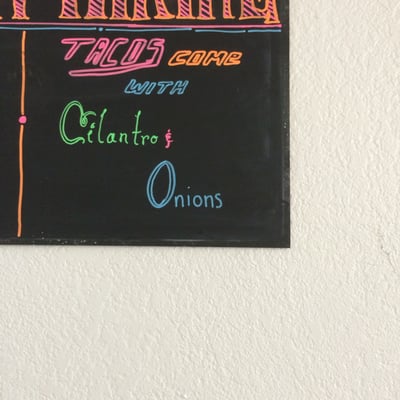 TACOS COME
WITH
Cilantro &
Onions